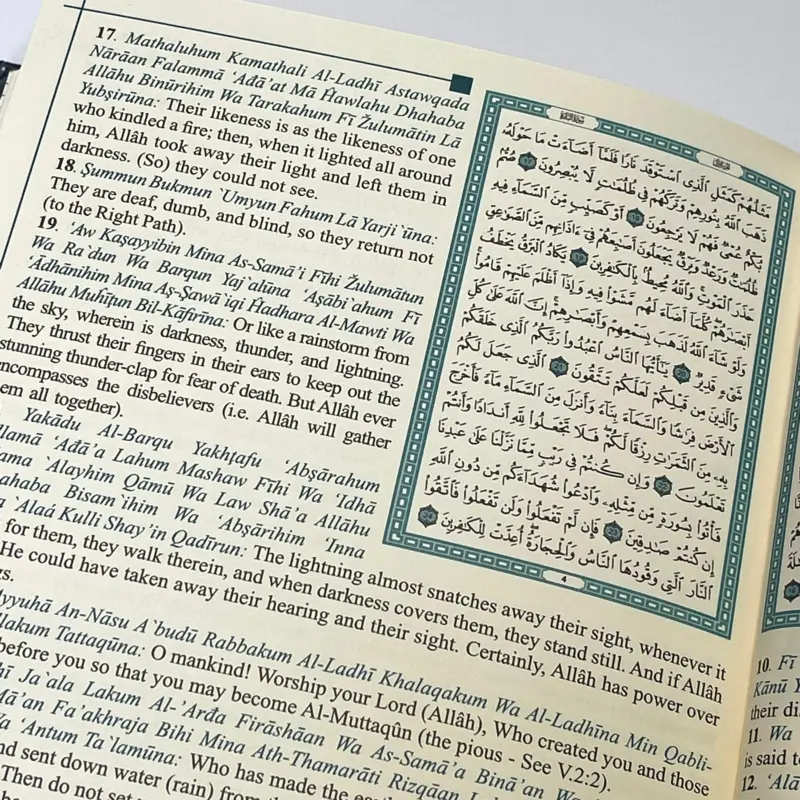 17. Mathaluhum Kamathali Al-Ladhī Astawqada
Nārāan Falammā 'Ađā'at Mā Ĥawlahu Dhahaba
Allāhu Binūrihim Wa Tarakahum Fī Žulumātin Lā
Yubşirūna: Their likeness is as the likeness of one
who kindled a fire; then, when it lighted all around
him, Allâh took away their light and left them in
darkness. (So) they could not see.
18. Şummun Bukmun `Umyun Fahum Lā Yarji`ūna:
They are deaf, dumb, and blind, so they return not
(to the Right Path).
19. 'Aw Kaşayyibin Mina As-Samā'i Fīhi Žulumātun
Wa Ra`dun Wa Barqun Yaj`alūna 'Aşābi`ahum Fī
'Ādhānihim Mina Aş-Şawā`iqi Ĥadhara Al-Mawti Wa
Allāhu Muĥīţun Bil-Kāfirīna: Or like a rainstorm from
the sky, wherein is darkness, thunder, and lightning.
They thrust their fingers in their ears to keep out the
stunning thunder-clap for fear of death. But Allâh ever
encompasses the disbelievers (i.e. Allâh will gather
em all together).
Yakādu Al-Barqu Yakhţafu 'Abşārahum
llamā 'Ađā'a Lahum Mashaw Fīhi Wa 'Idhā
ama `Alayhim Qāmū Wa Law Shā'a Allāhu
ahaba Bisam`ihim Wa 'Abşārihim 'Inna
a `Alaá Kulli Shay'in Qadīrun: The lightning almost snatches away their sight, whenever it
for them, they walk therein, and when darkness covers them, they stand still. And if Allâh
He could have taken away their hearing and their sight. Certainly, Allâh has power over
gs.
Ayyuhā An-Nāsu A`budū Rabbakum Al-Ladhī Khalaqakum Wa Al-Ladhīna Min Qabli-
llakum Tattaqūna: O mankind! Worship your Lord (Allâh), Who created you and those
before you so that you may become Al-Muttaqûn (the pious - See V.2:2).
hī Ja`ala Lakum Al-'Arđa Firāshāan Wa As-Samā'a Binā'an Wa
Mā'an Fa'akhraja Bihi Mina Ath-Thamarāti Rizqāan
Wa 'Antum Ta`lamūna: Who has made the
nd sent down water (rain) from
Then do not set
مَثَلُهُمْ كَمَثَلِ ٱلَّذِى ٱسْتَوْقَدَ نَارًا فَلَمَّآ أَضَآءَتْ مَا حَوْلَهُۥ
ذَهَبَ ٱللَّهُ بِنُورِهِمْ وَتَرَكَهُمْ فِى ظُلُمَٰتٍ لَّا يُبْصِرُونَ ١٧ صُمٌّۢ
بُكْمٌ عُمْىٌ فَهُمْ لَا يَرْجِعُونَ ١٨ أَوْ كَصَيِّبٍ مِّنَ ٱلسَّمَآءِ فِيهِ
ظُلُمَٰتٌ وَرَعْدٌ وَبَرْقٌ يَجْعَلُونَ أَصَٰبِعَهُمْ فِىٓ ءَاذَانِهِم مِّنَ ٱلصَّوَٰعِقِ
حَذَرَ ٱلْمَوْتِ ۚ وَٱللَّهُ مُحِيطٌۢ بِٱلْكَٰفِرِينَ ١٩ يَكَادُ ٱلْبَرْقُ يَخْطَفُ
أَبْصَٰرَهُمْ ۖ كُلَّمَآ أَضَآءَ لَهُم مَّشَوْا۟ فِيهِ وَإِذَآ أَظْلَمَ عَلَيْهِمْ قَامُوا۟ ۚ
وَلَوْ شَآءَ ٱللَّهُ لَذَهَبَ بِسَمْعِهِمْ وَأَبْصَٰرِهِمْ ۚ إِنَّ ٱللَّهَ عَلَىٰ كُلِّ
شَىْءٍ قَدِيرٌ ٢٠ يَٰٓأَيُّهَا ٱلنَّاسُ ٱعْبُدُوا۟ رَبَّكُمُ ٱلَّذِى خَلَقَكُمْ
وَٱلَّذِينَ مِن قَبْلِكُمْ لَعَلَّكُمْ تَتَّقُونَ ٢١ ٱلَّذِى جَعَلَ لَكُمُ
ٱلْأَرْضَ فِرَٰشًا وَٱلسَّمَآءَ بِنَآءً وَأَنزَلَ مِنَ ٱلسَّمَآءِ مَآءً فَأَخْرَجَ
بِهِۦ مِنَ ٱلثَّمَرَٰتِ رِزْقًا لَّكُمْ ۖ فَلَا تَجْعَلُوا۟ لِلَّهِ أَندَادًا وَأَنتُمْ
تَعْلَمُونَ ٢٢ وَإِن كُنتُمْ فِى رَيْبٍ مِّمَّا نَزَّلْنَا عَلَىٰ عَبْدِنَا
فَأْتُوا۟ بِسُورَةٍ مِّن مِّثْلِهِۦ وَٱدْعُوا۟ شُهَدَآءَكُم مِّن دُونِ ٱللَّهِ
إِن كُنتُمْ صَٰدِقِينَ ٢٣ فَإِن لَّمْ تَفْعَلُوا۟ وَلَن تَفْعَلُوا۟ فَٱتَّقُوا۟
ٱلنَّارَ ٱلَّتِى وَقُودُهَا ٱلنَّاسُ وَٱلْحِجَارَةُ ۖ أُعِدَّتْ لِلْكَٰفِرِينَ ٢٤
4
10. Fī
Kānū
their di
11. Wa
is said t
12. 'Alā